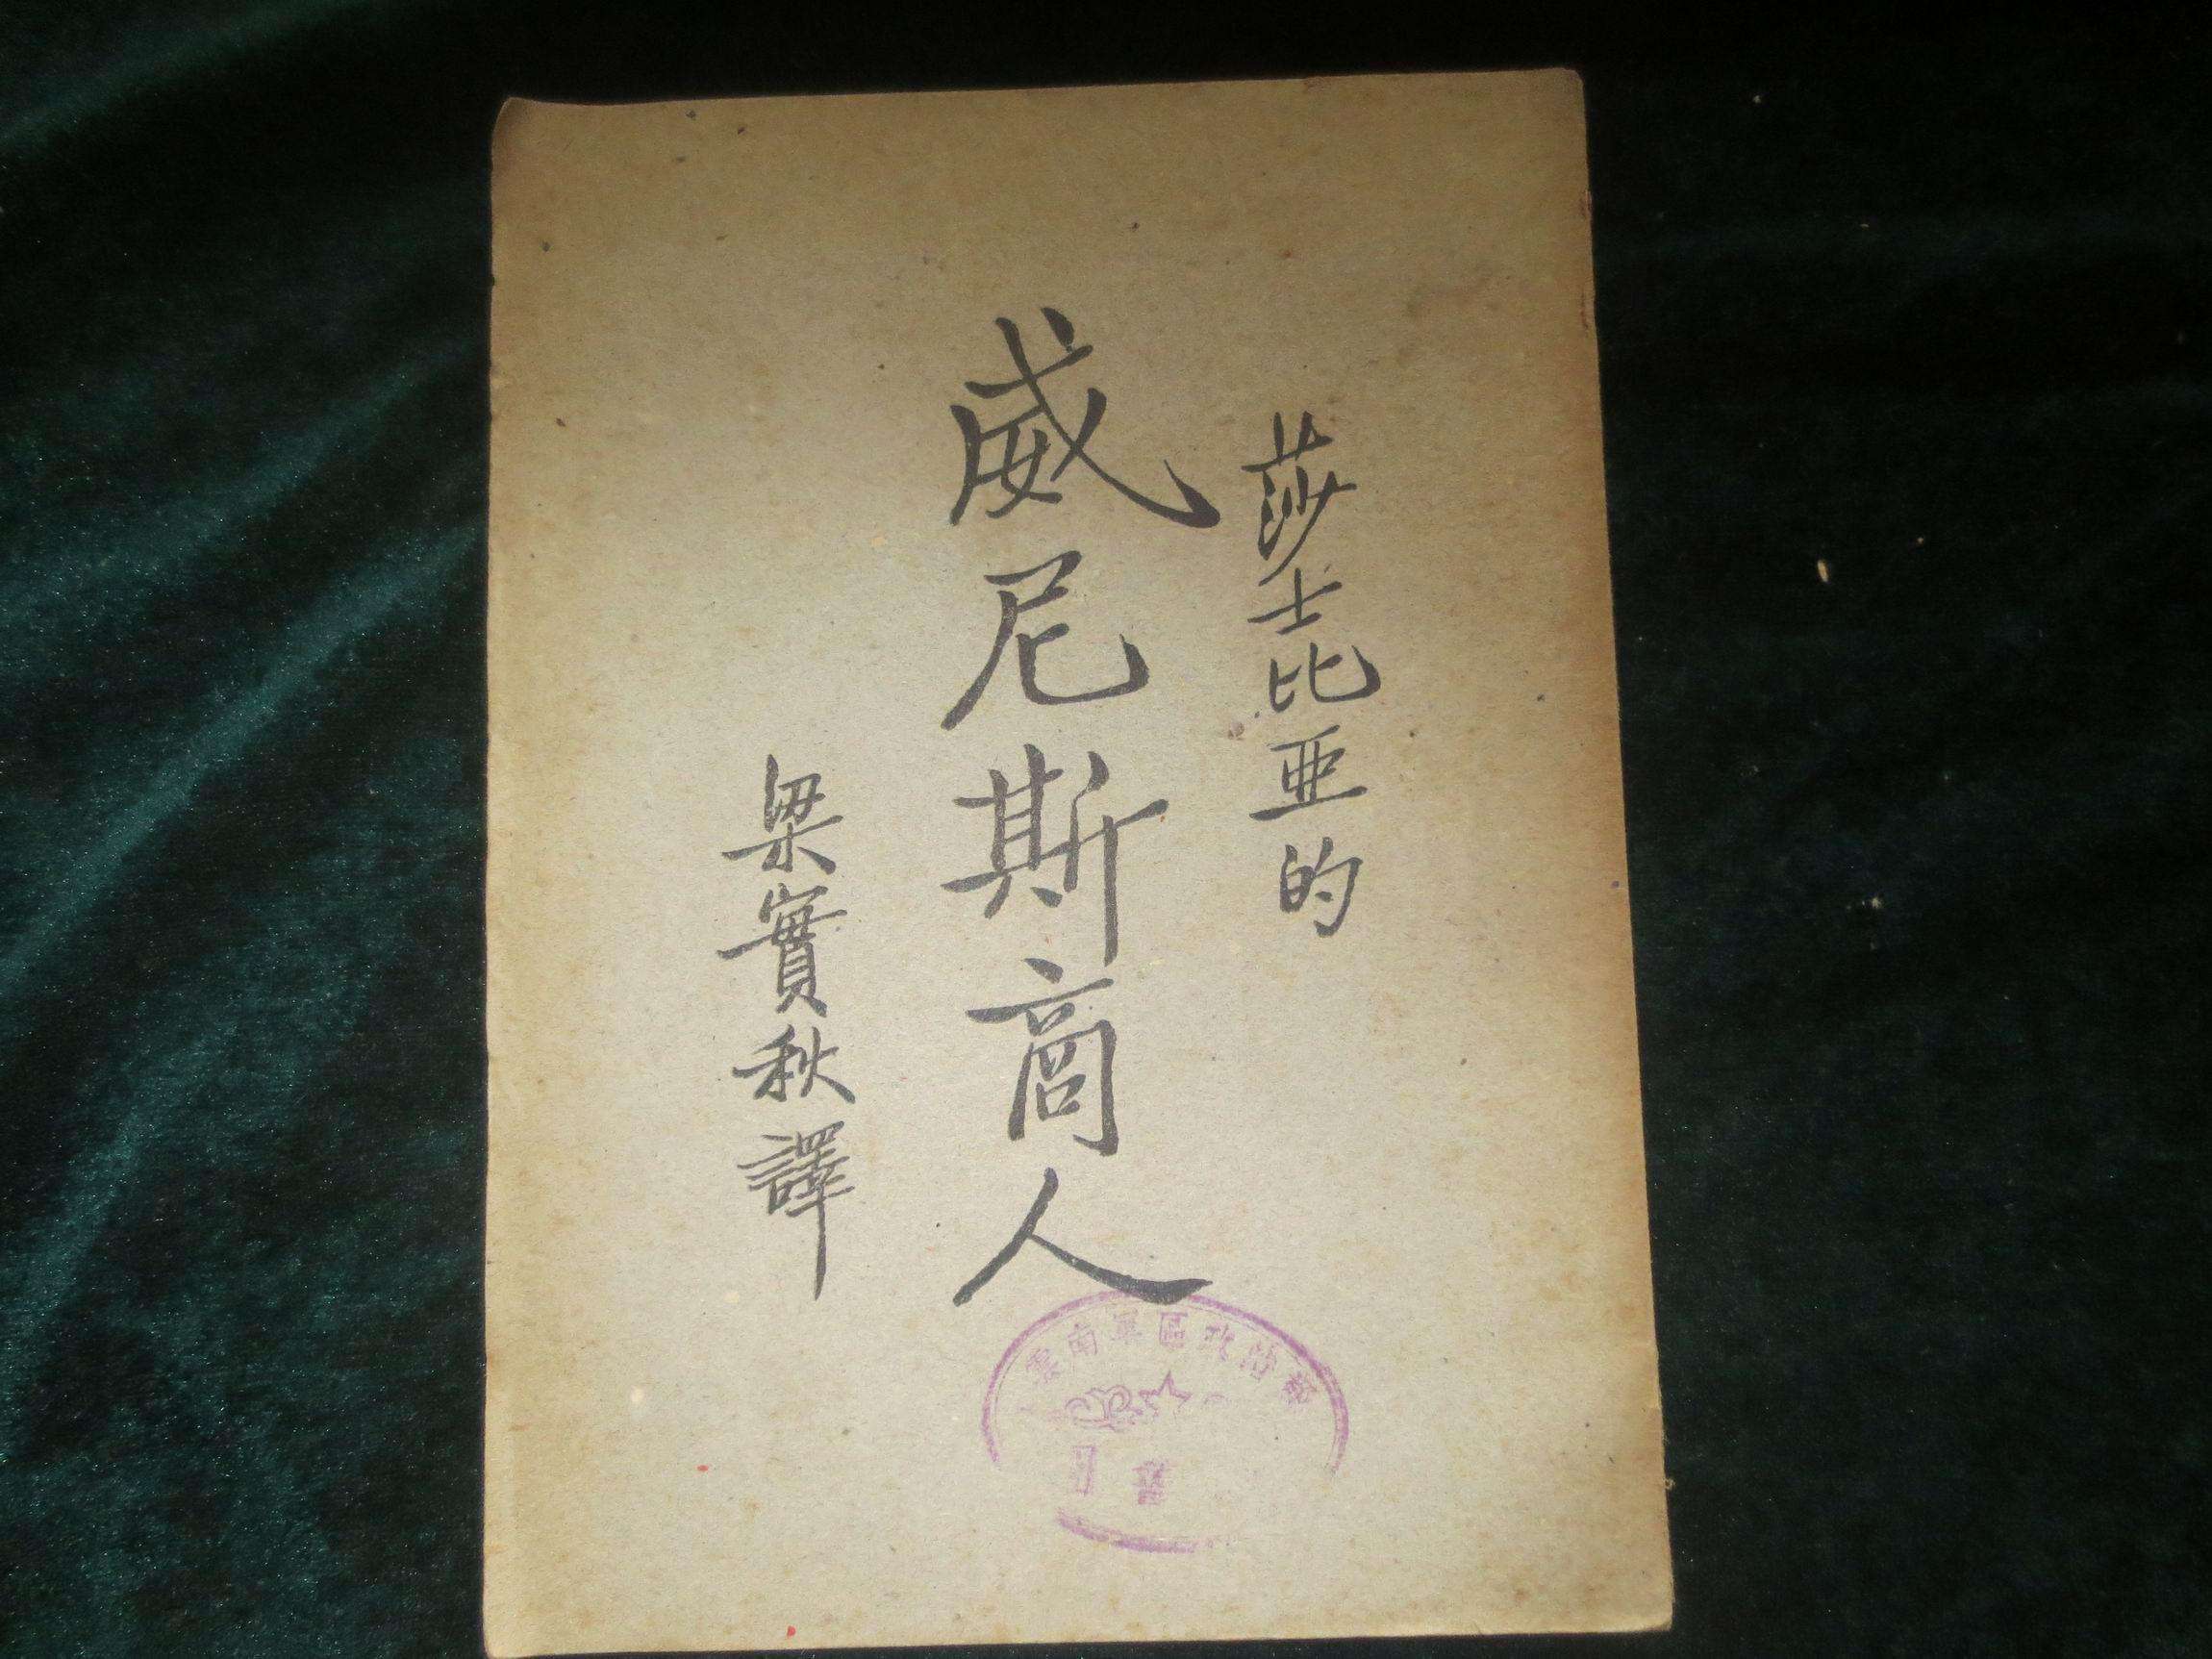 莎士比亚的
威尼斯商人
梁實秋譯
雲南軍區政治部